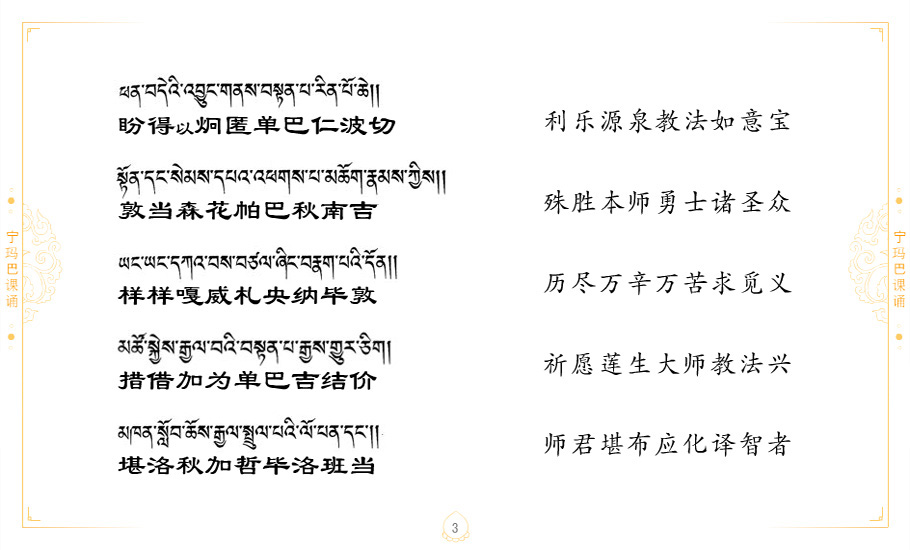 ཕན་བདེའི་འབྱུང་གནས་བསྟན་པ་རིན་པོ་ཆེ།།
盼得以炯匿单巴仁波切
利乐源泉教法如意宝
སྟོན་དང་སེམས་དཔའ་འཕགས་པ་མཆོག་རྣམས་ཀྱིས།།
敦当森花帕巴秋南吉
殊胜本师勇士诸圣众
ཡང་ཡང་དཀའ་བས་བཙལ་ཞིང་བརྣག་པའི་དོན།།
样样嘎威札央纳毕敦
历尽万辛万苦求觅义
མཚོ་སྐྱེས་རྒྱལ་བའི་བསྟན་པ་རྒྱས་གྱུར་ཅིག།
措借加为单巴吉结价
祈愿莲生大师教法兴
མཁན་སློབ་ཆོས་རྒྱལ་སྤྲུལ་པའི་ལོ་པན་དང་།།
堪洛秋加哲毕洛班当
师君堪布应化译智者
宁玛巴课诵
宁玛巴课诵
3